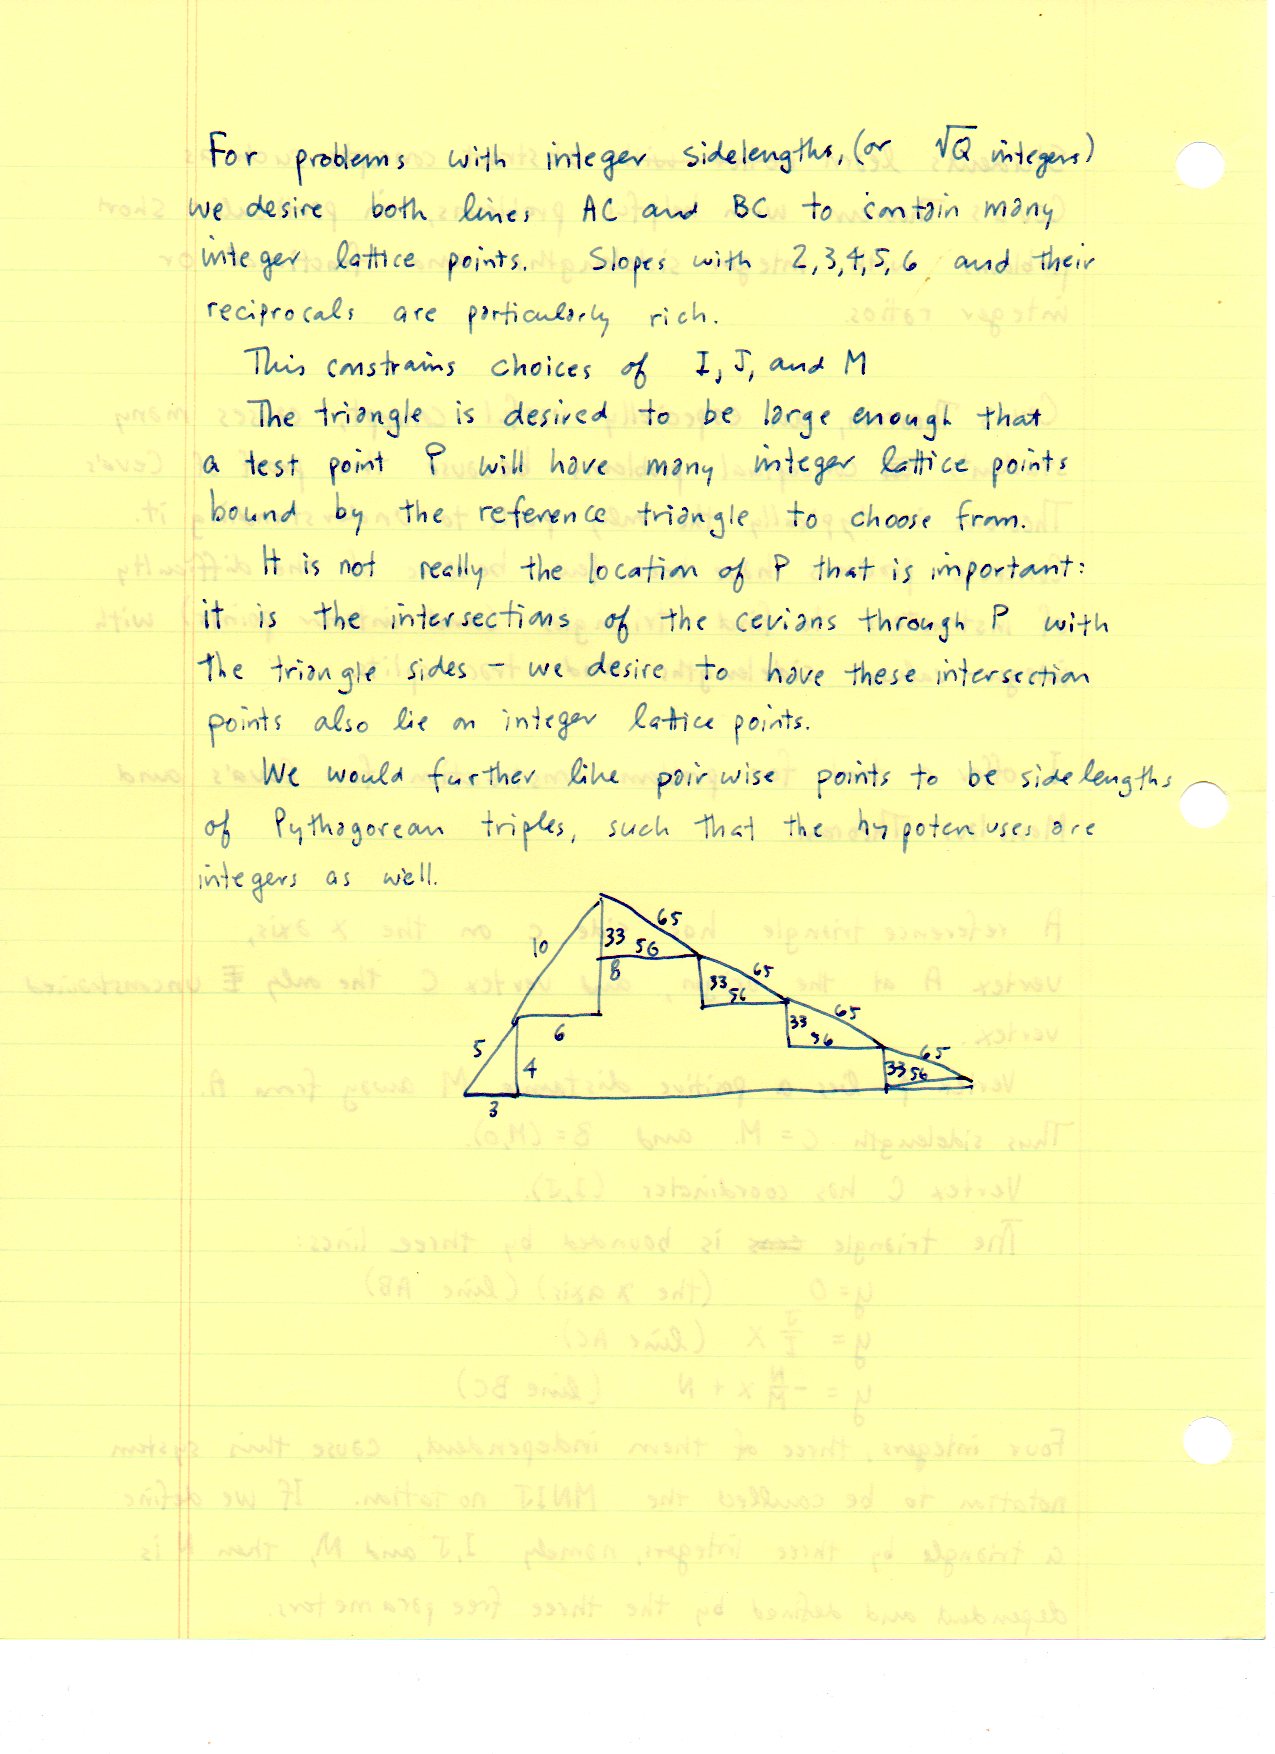 For problems with integer sidelengths, (or √Q integers)
we desire both lines AC and BC to contain many
integer lattice points. Slopes with 2,3,4,5,6 and their
reciprocals are particularly rich.
This constrains choices of I, J, and M
The triangle is desired to be large enough that
a test point P will have many integer lattice points
bound by the reference triangle to choose from.
It is not really the location of P that is important:
it is the intersections of the cevians through P with
the triangle sides – we desire to have these intersection
points also lie on integer lattice points.
We would further like pairwise points to be sidelengths
of Pythagorean triples, such that the hypotenuses are
integers as well.
65
10
33 56
8
65
33
56
65
6
33
56
5
65
4
33 56
3